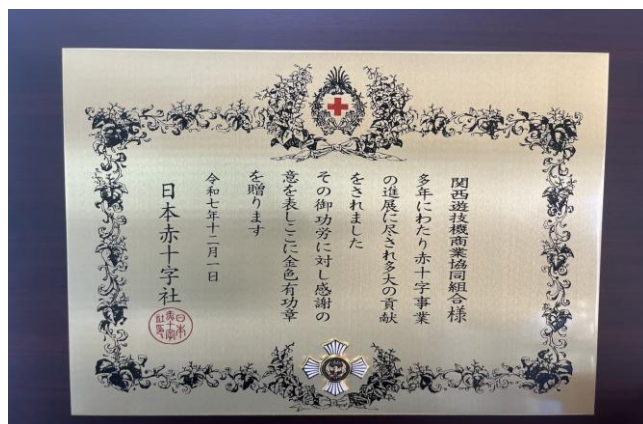 関西遊技機商業協同組合様
多年にわたり赤十字事業
の進展に尽され多大の貢献
をされました
その御功労に対し感謝の
意を表しここに金色有功章
を贈ります
令和七年十二月一日
日本赤十字社